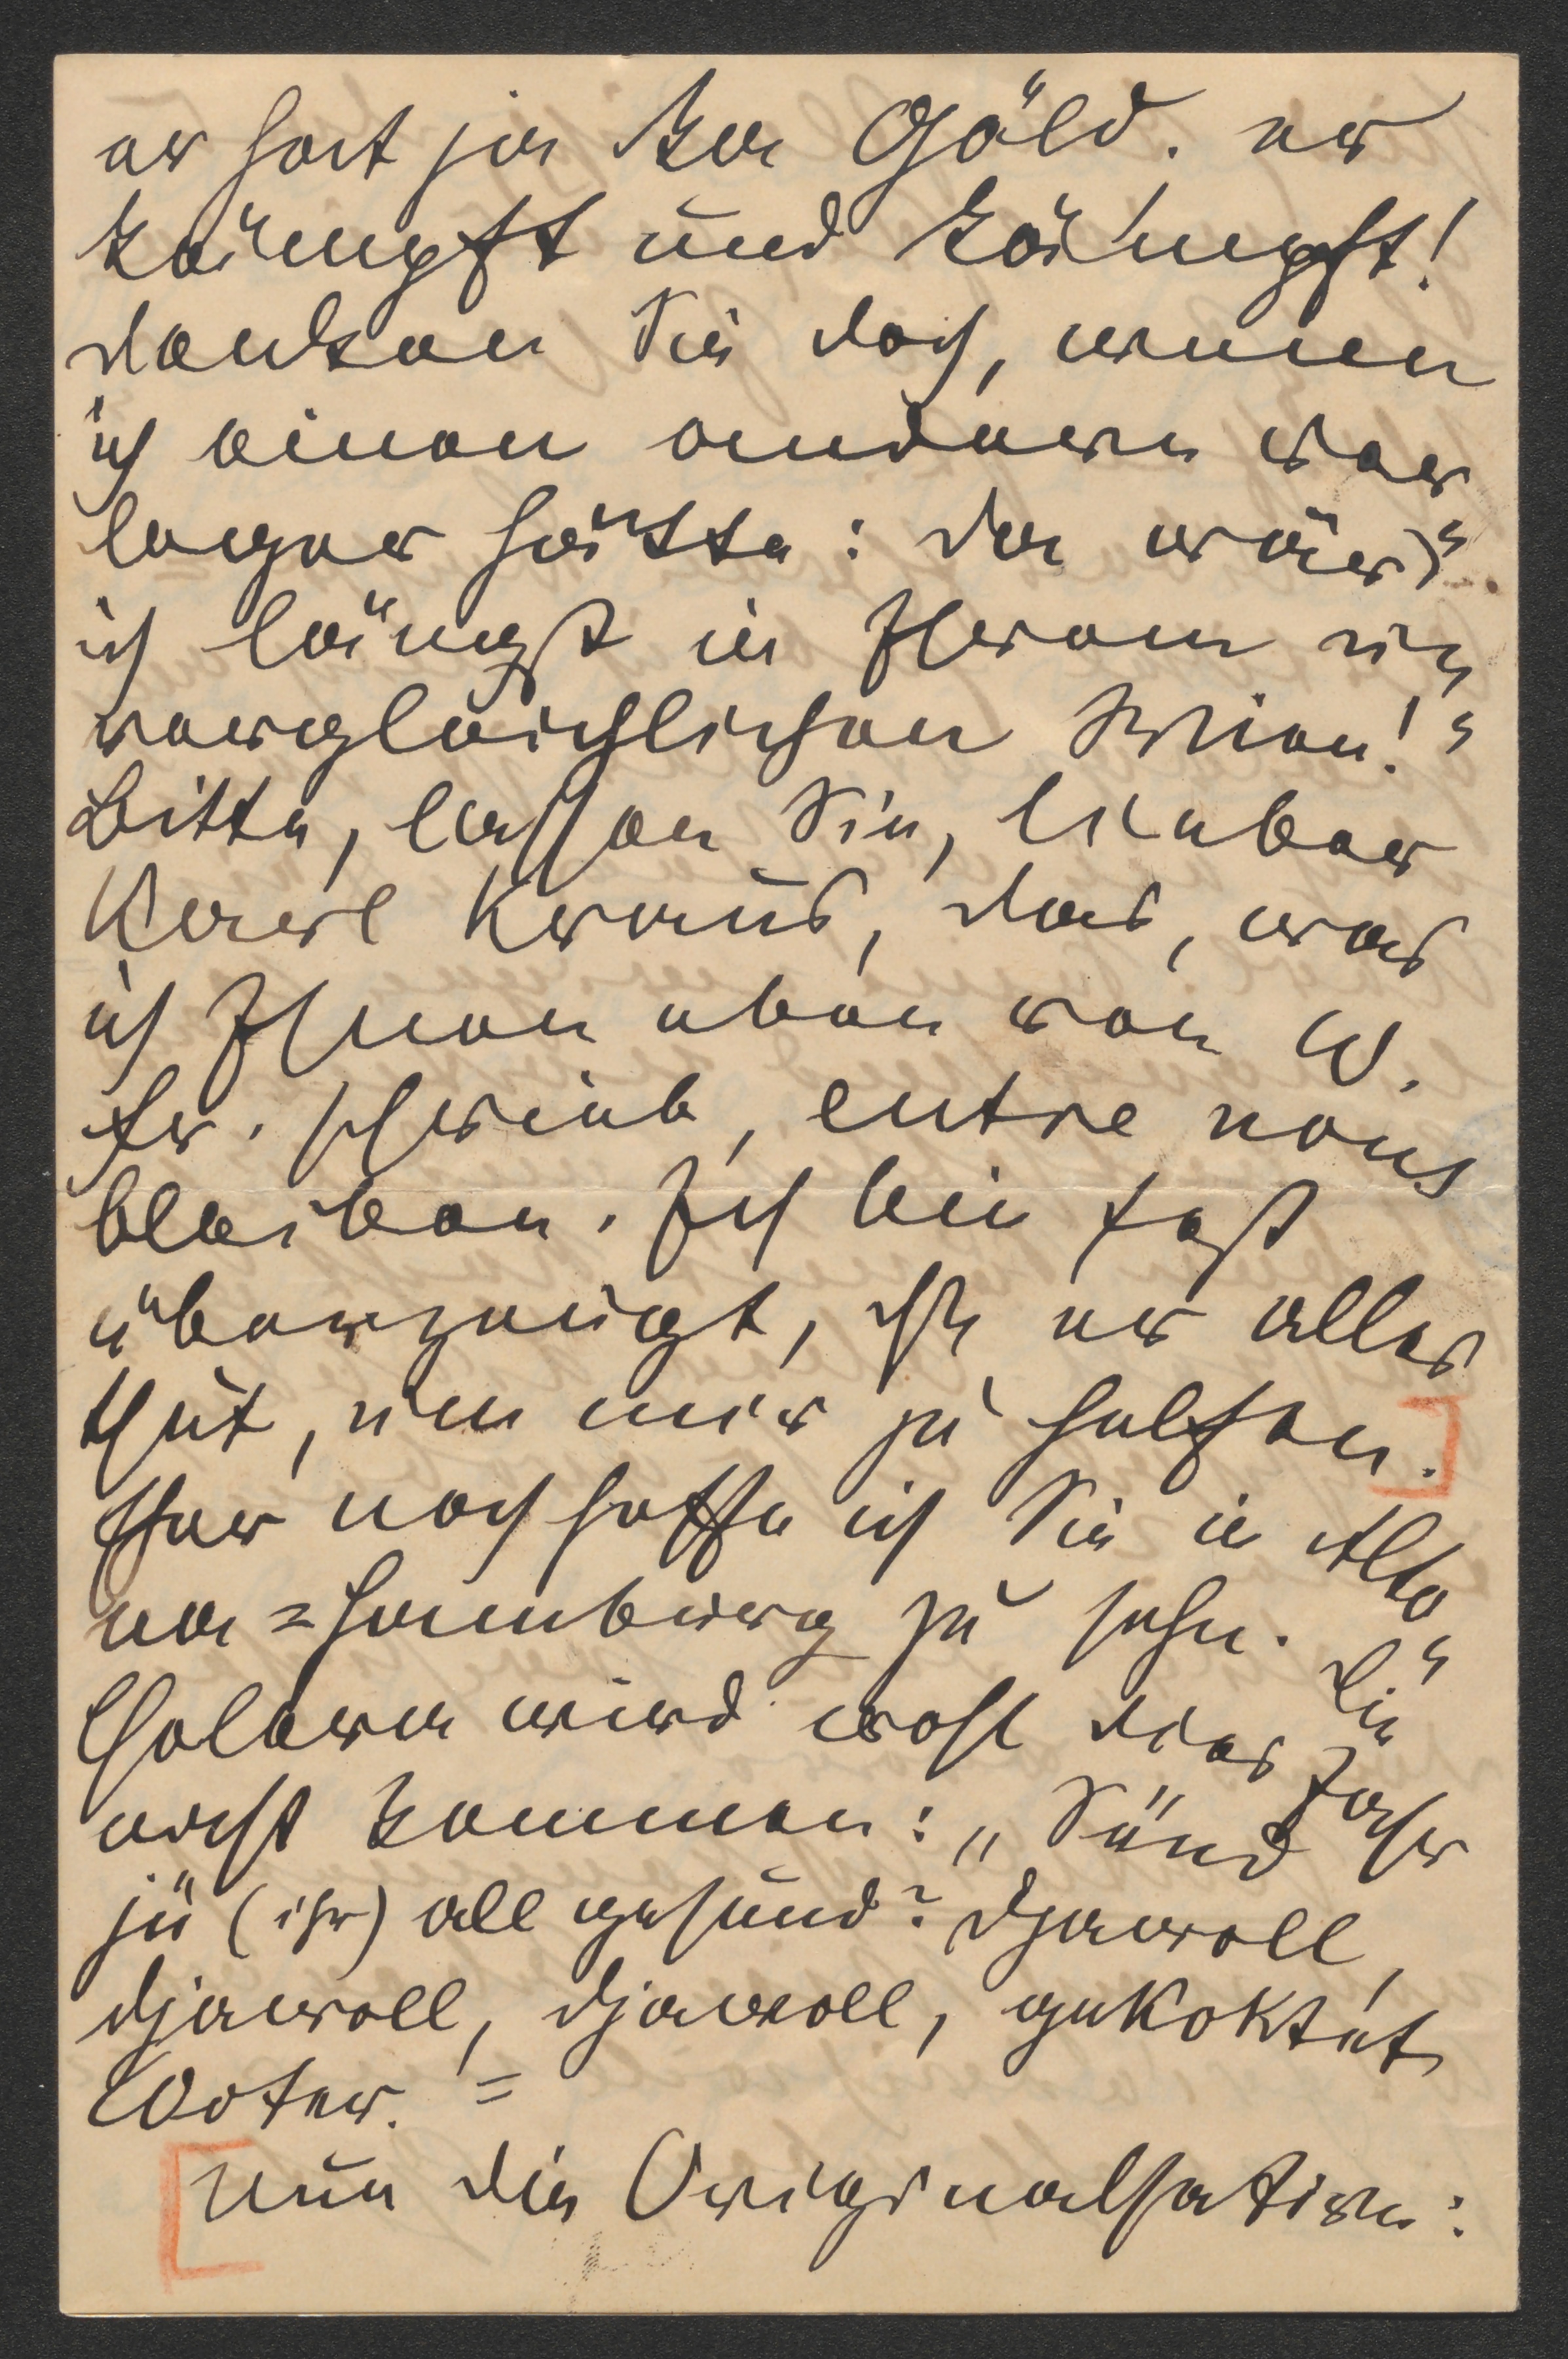 er hat ja kein Gäld. er
kämpft und kämpft!
denken Sie doch, wenn
ich einen andern Ver
leger hätte: da wär"
ich längst in Ihrem un"
vergleichlichen Wien!"
Bitte, lassen Sie, lieber
Karl Kraus, das, was
ich Ihnen eben von W.
Fr. schrieb, entre nous
bleiben. Ich bin fest
überzeugt, dß er alles
thut, um mir zu helfen.]
Hier noch hoffe ich Sie in Alto
na=Hamburg zu sehn. Die"
Cholera wird wohl dies Jahr
nicht kommen: „Sünd
jü (ihr) all gesund? Djawoll,
djawoll, djawoll, gekoktet
Woter. =
[Nun die Originalsatire: